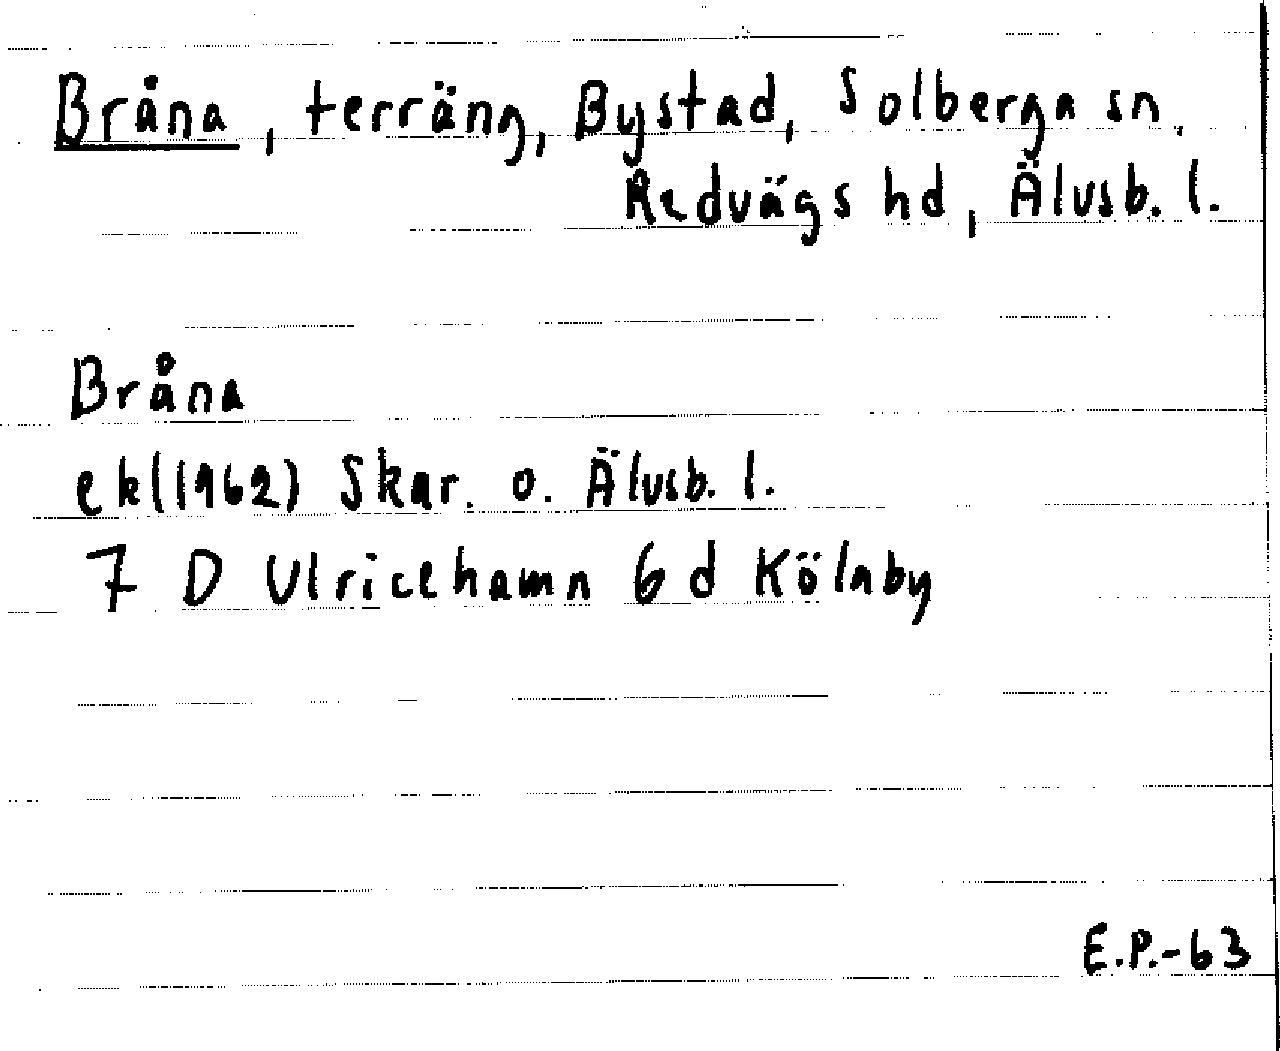 Bråna, terräng, Bystad, Solberga sn.
Redvägs hd, Älvsb. l.
Bråna
ek (1962) Skar. o. Älvsb. l.
7 D Ulricehamn 6 d Kölnby
E.P.-63